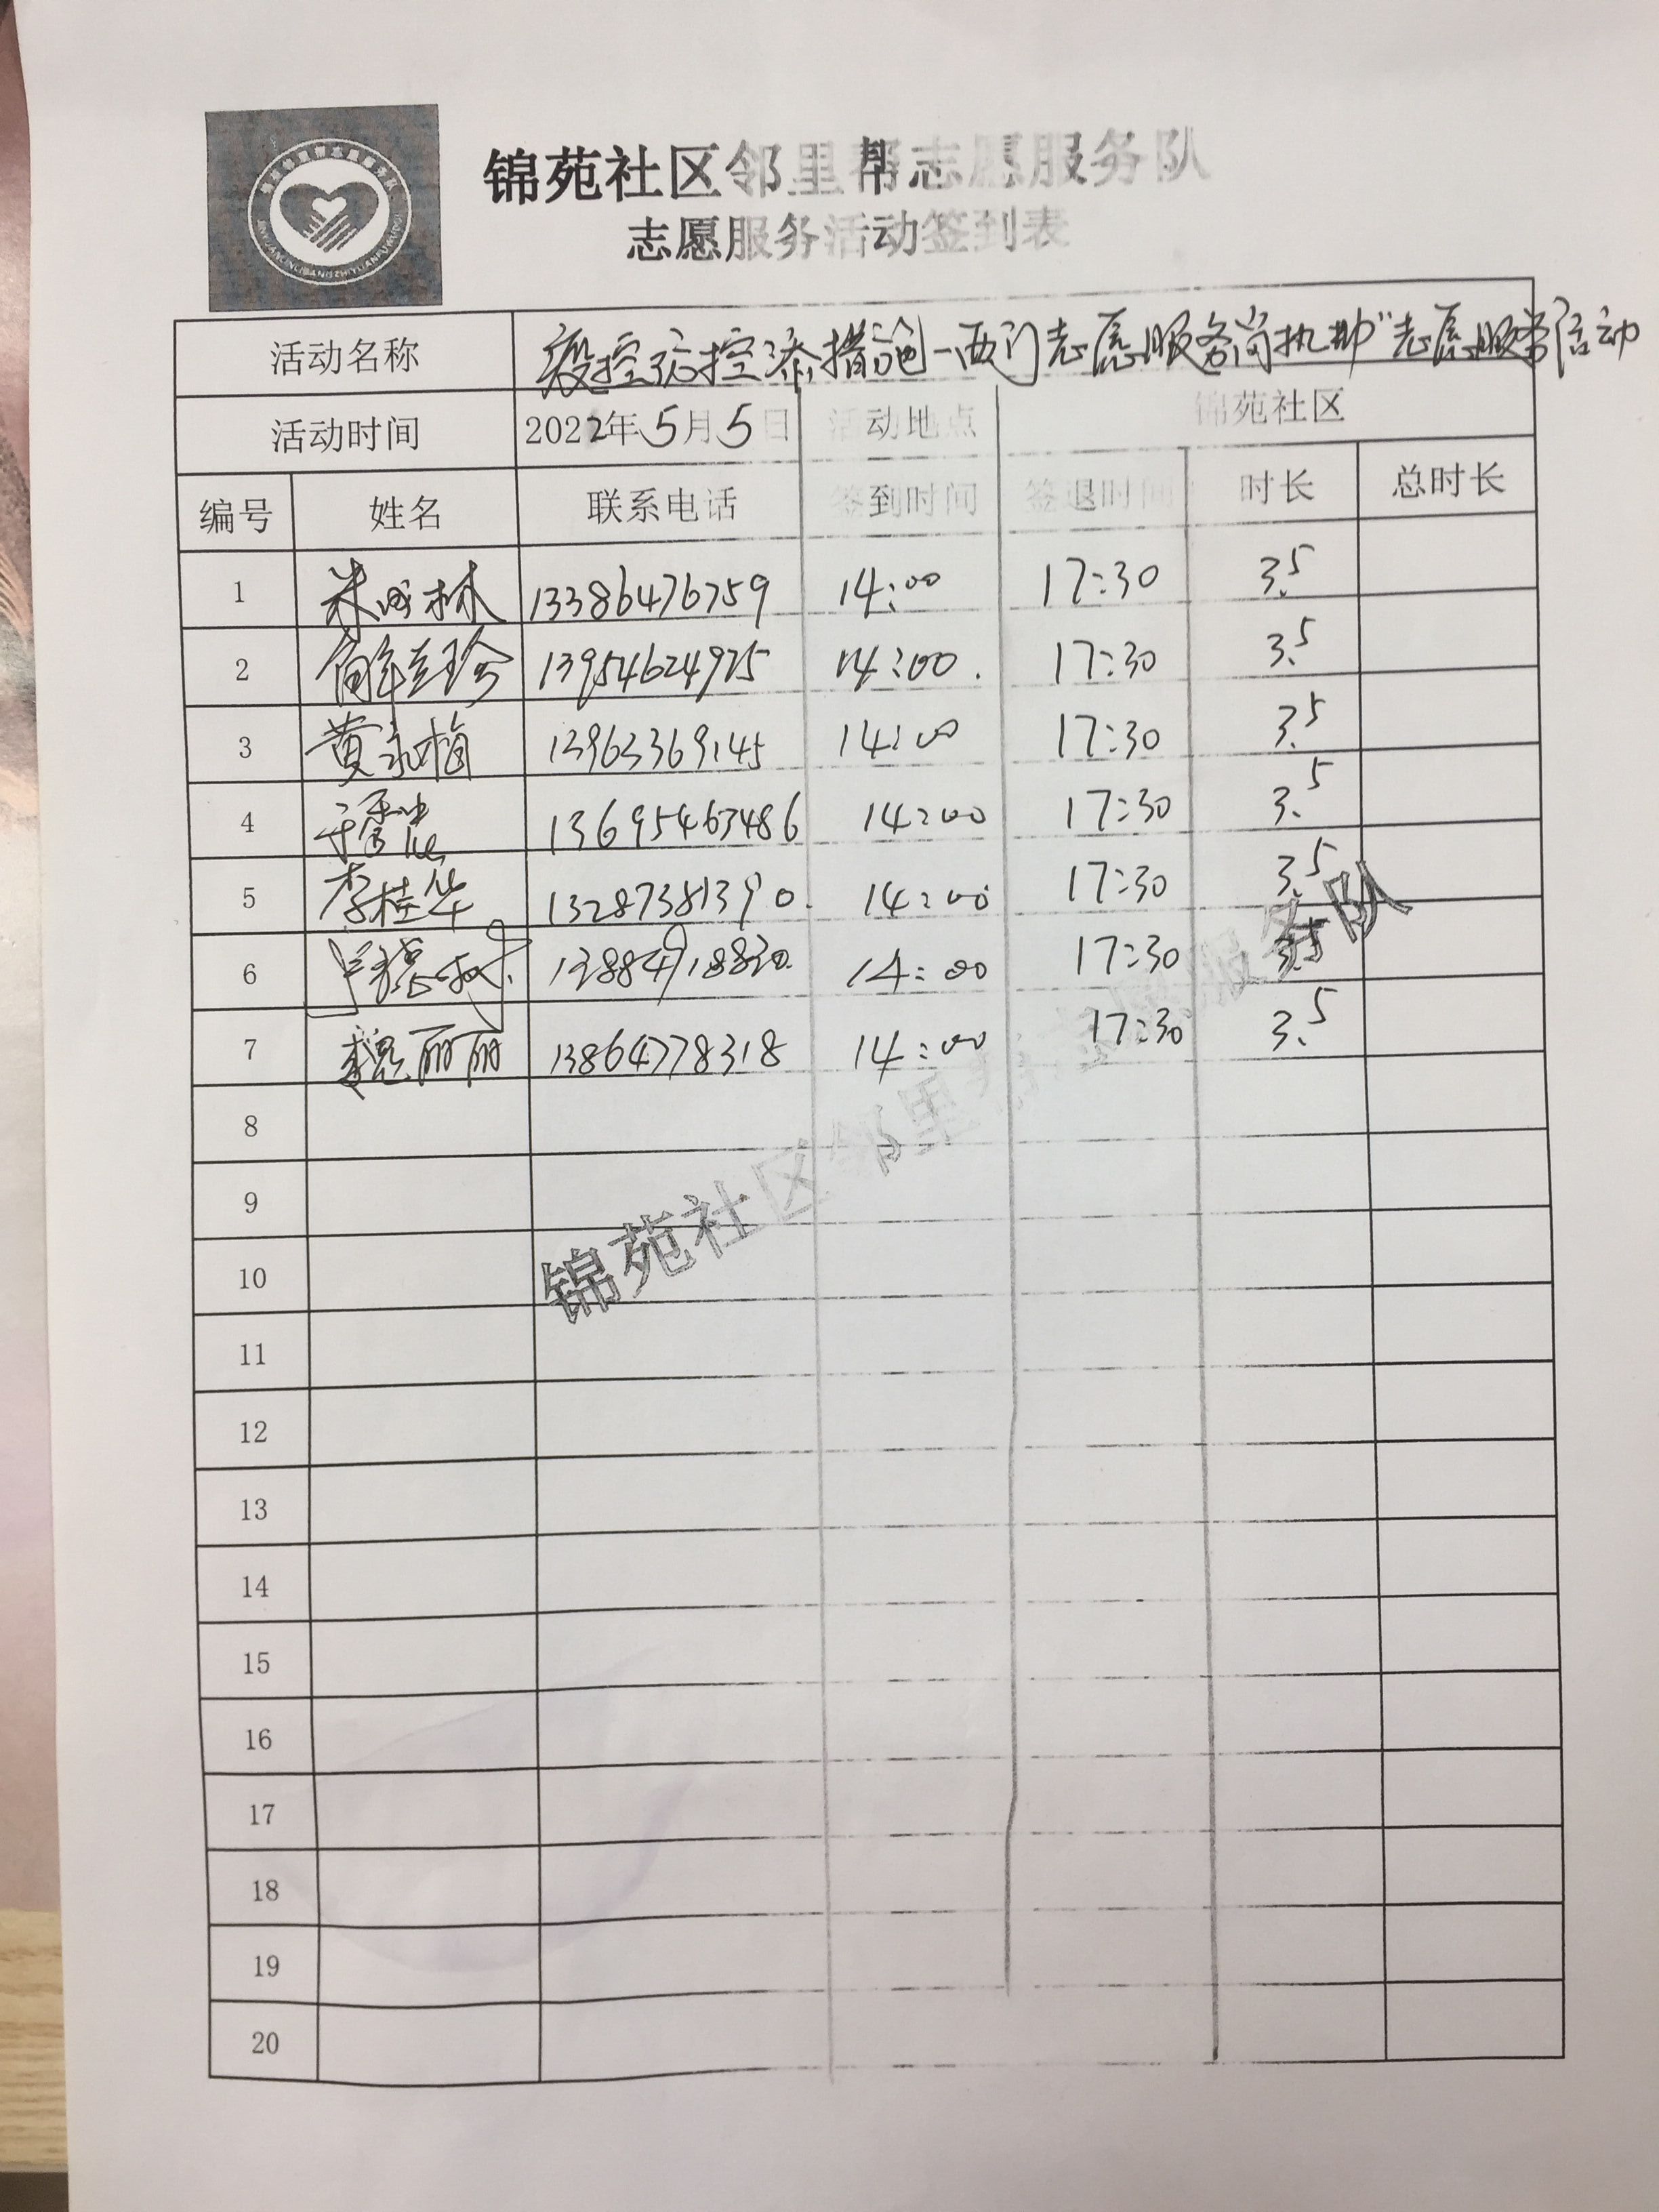 锦苑社区邻里帮志愿服务队
志愿服务活动签到表
活动名称 措施-西门志愿服务岗执勤"志愿服务活动
活动时间 2022年5月5日 活动地点 锦苑社区
编号 姓名 联系电话 签到时间 签退时间 时长 总时长
1 林 13386476759 14:00 17:30 3.5
2 珍 13954624925 14:00 17:30 3.5
3 黄永梅 13963369145 14:00 17:30 3.5
4 13695463486 14:00 17:30 3.5
5 李桂华 13287381390 14:00 17:30 3.5
6 14:00 17:30 3.5
7 魏丽丽 13864778318 14:00 17:30 3.5
8
9
10
11
12
13
14
15
16
17
18
19
20
锦苑社区邻里帮志愿服务队